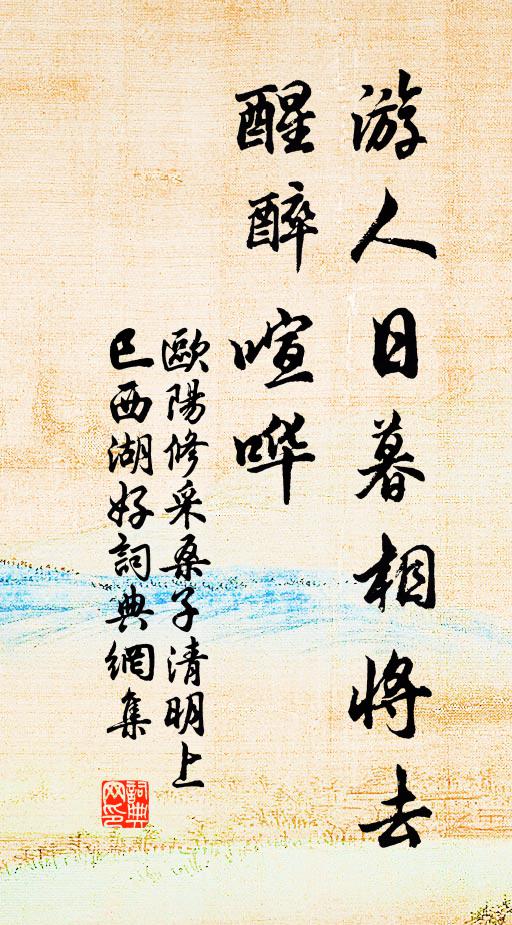 游人日暮相将去
醒醉喧哗
歐陽修采桑子清明上
巳西湖好詞典網集
詞典网印